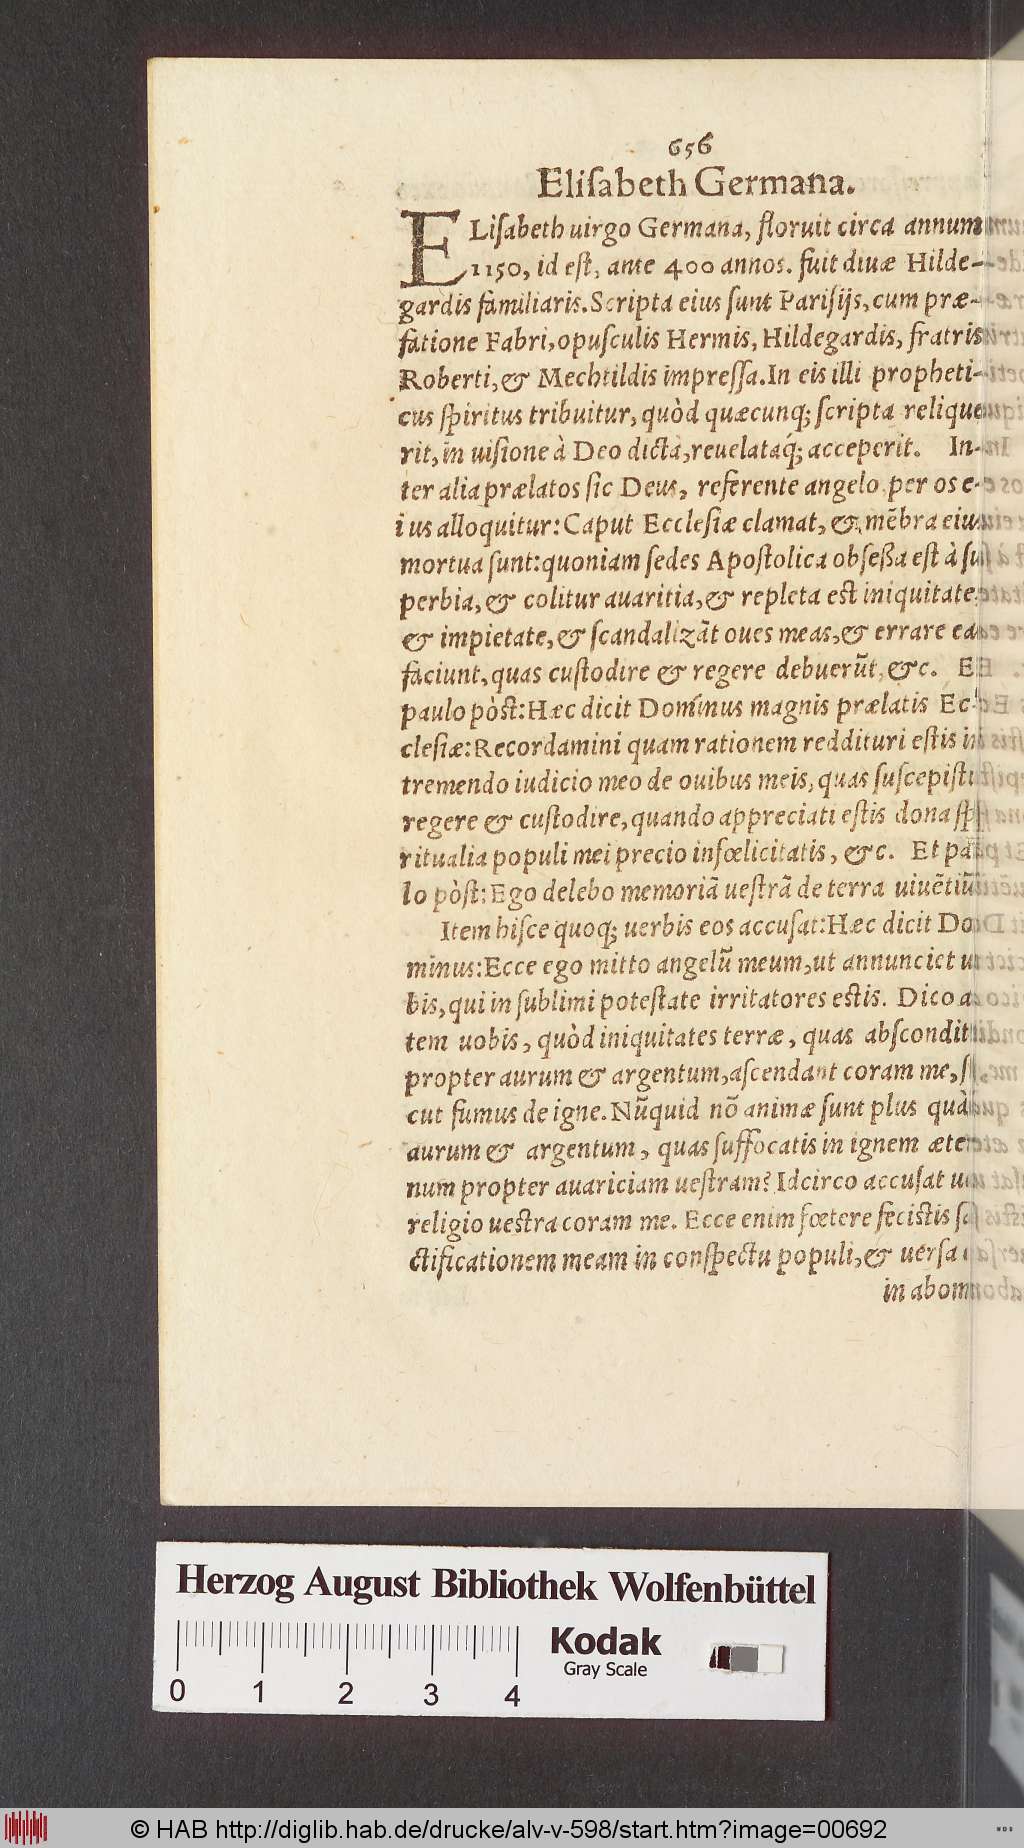 656
Eliſabeth Germana.
ELiſabeth uirgo Germana, floruit circa annum
1150, id eſt, ante 400 annos. fuit diuæ Hilde-
gardis familiaris. Scripta eius ſunt Pariſijs, cum præ-
fatione Fabri, opuſculis Hermis, Hildegardis, fratris
Roberti, & Mechtildis impreſſa. In eis illi propheti-
cus ſpiritus tribuitur, quòd quæcunq; ſcripta relique
rit, in uiſione à Deo dicta, reuelataq́; acceperit. In-
ter alia prælatos ſic Deus, referente angelo per os e-
ius alloquitur: Caput Eccleſiæ clamat, & mẽbra eius
mortua ſunt: quoniam ſedes Apoſtolica obſeßa eſt à ſu
perbia, & colitur auaritia, & repleta est iniquitate
& impietate, & ſcandalizãt oues meas, & errare eas
faciunt, quas cuſtodire & regere debuerũt, &c. Et
paulo pòſt: Hæc dicit Dominus magnis prælatis Ec-
cleſiæ: Recordamini quam rationem reddituri eſtis in
tremendo iudicio meo de ouibus meis, quas ſuſcepiſtis
regere & cuſtodire, quando appreciati eſtis dona ſpi
ritualia populi mei precio infœlicitatis, &c. Et pau
lo pòſt: Ego delebo memoriã ueſtrã de terra uiuẽtiũ.
Item hiſce quoq; uerbis eos accuſat: Hæc dicit Do
minus: Ecce ego mitto angelũ meum, ut annunciet uo
bis, qui in ſublimi poteſtate irritatores eſtis. Dico au
tem uobis, quòd iniquitates terræ, quas abſcondit
propter aurum & argentum, aſcendant coram me, ſi
cut fumus de igne. Nũquid nõ animæ ſunt plus quàm
aurum & argentum, quas ſuffocatis in ignem æter
num propter auariciam ueſtram? Idcirco accuſat uos
religio ueſtra coram me. Ecce enim fœtere feciſtis ſan
ctificationem meam in conſpectu populi, & uerſa
in abomi
Herzog August Bibliothek Wolfenbüttel
0 1 2 3 4
Kodak
Gray Scale
© HAB http://diglib.hab.de/drucke/alv-v-598/start.htm?image=00692